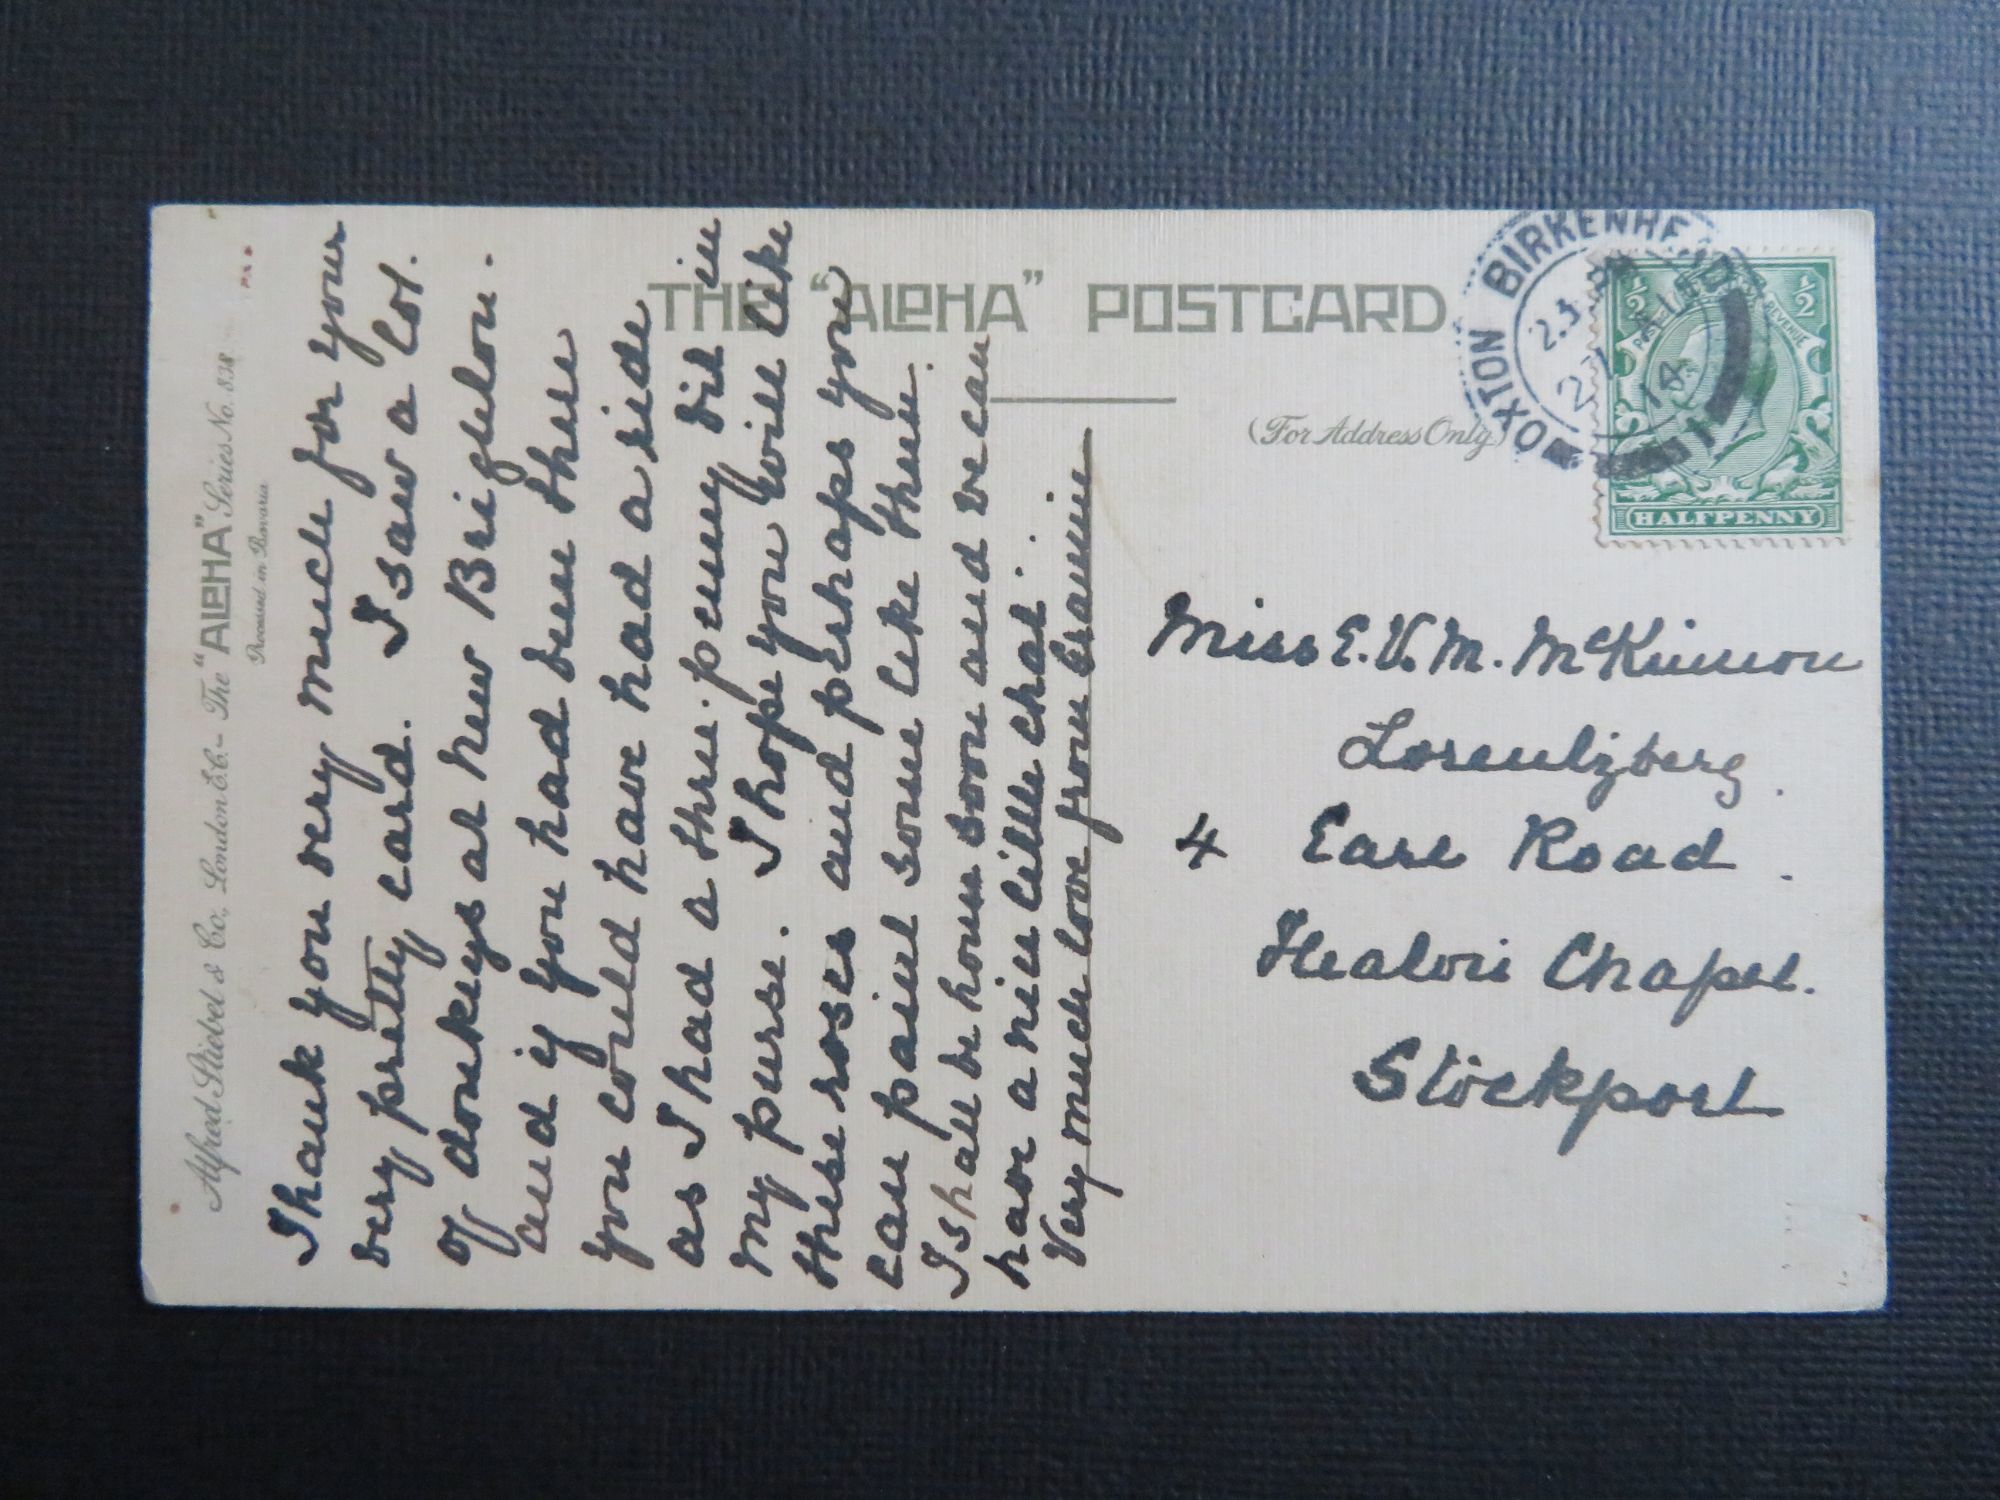 Alfred Stiebel & Co., London E.C. - The "ALPHA" Series No. 838
Processed in Bavaria
THE "ALPHA" POSTCARD
(For Address Only)
OXTON BIRKENHE
14
HALFPENNY
½ ½
POSTAGE REVENUE
Thank you very much for your
very pretty card. I saw a lot.
of donkeys at New Brighton.
and if you had been there
you could have had a ride
as I had a three. penny bit in
my purse. I hope you will like
these roses and perhaps you
can paint some like them.
I shall be home soon and we can
have a nice little chat.
Very much love from
Miss E. V. M. McKinnon
Lorentzberg
4 Earl Road.
Heaton Chapel.
Stockport